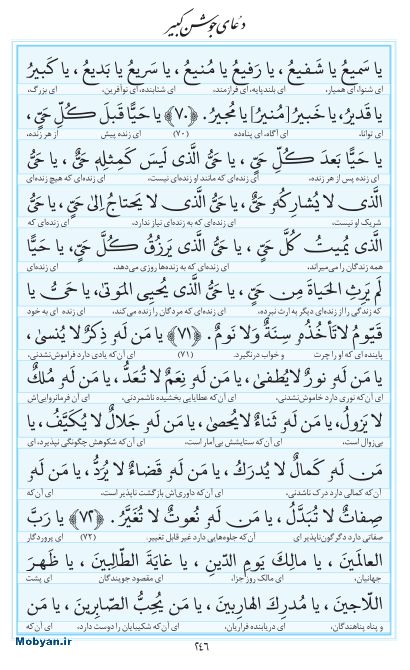 دعای جوشن کبیر
یا سَمیعُ یا شَفیعُ ، یا رَفیعُ یا مَنیعُ ، یا سَریعُ یا بَدیعُ ، یا کَبیرُ
ای شنوا، ای همیار، ای بلندپایه، ای فرازمند، ای شتابنده، ای نوآفرین، ای بزرگ،
یا قَدیرُ ، یا خَبیرُ [مُنیرُ] یا مُجیرُ . ﴿٧٠﴾ یا حَیًّا قَبلَ کُلِّ حَیٍّ ،
ای توانا، ای آگاه، ای پناه‌ده (۷۰) ای زنده پیش از هر زنده،
یا حَیًّا بَعدَ کُلِّ حَیٍّ ، یا حَیُّ الَّذی لَیسَ کَمِثلِهِ حَیٌّ ، یا حَیُّ
ای زنده پس از هر زنده، ای زنده‌ای که مانند او زنده‌ای نیست، ای زنده‌ای که هیچ زنده‌ای
الَّذی لا یُشارِکُهُ حَیٌّ ، یا حَیُّ الَّذی لا یَحتاجُ اِلیٰ حَیٍّ ، یا حَیُّ
شریک او نیست، ای زنده‌ای که به زنده‌ای نیاز ندارد. ای زنده‌ای که
الَّذی یُمیتُ کُلَّ حَیٍّ ، یا حَیُّ الَّذی یَرزُقُ کُلَّ حَیٍّ، یا حَیًّا
همه زندگان را می‌میراند، ای زنده‌ای که به زنده‌ها روزی می‌دهد، ای زنده‌ای
لَم یَرِثِ الحَیاةَ مِن حَیٍّ ، یا حَیُّ الَّذی یُحیِی المَوتیٰ، یا حَیُّ یا
که زندگی را از زنده‌ای دیگر به ارث نبرده، ای زنده‌ای که مردگان را زنده می‌کند، ای زنده ای به خود
قَیّومُ لا تَأخُذُهُ سِنَةٌ وَلا نَومٌ . ﴿٧١﴾ یا مَن لَهُ ذِکرٌ لا یُنسیٰ،
پاینده‌ای که او را چرت و خواب در نگیرد. (۷۱) ای آن‌که یادی دارد فراموش‌نشدنی،
یا مَن لَهُ نورٌ لا یُطفیٰ ، یا مَن لَهُ نِعَمٌ لا تُعَدُّ ، یا مَن لَهُ مُلکٌ
ای آن‌که نوری دارد خاموش‌نشدنی، ای آن‌که عطایایی بخشیده ناشمردنی، ای آن فرمانروایی‌اش
لا یَزولُ، یا مَن لَهُ ثَناءٌ لا یُحصیٰ، یا مَن لَهُ جَلالٌ لا یُکَیَّفُ، یا
بی‌زوال است، ای آن‌که ستایشش بی‌آمار است، ای آن‌که شکوهش چگونگی نپذیرد، ای
مَن لَهُ کَمالٌ لا یُدرَکُ ، یا مَن لَهُ قَضاءٌ لا یُرَدُّ، یا مَن لَهُ
آن‌که کمالی دارد درک ناشدنی، ای آن‌که داوری‌اش بازگشت ناپذیر است، ای آن‌که
صِفاتٌ لا تُبَدَّلُ ، یا مَن لَهُ نُعوتٌ لا تُغَیَّرُ . ﴿٧٢﴾ یا رَبَّ
صفاتی دارد دگرگون‌ناپذیر ای آن‌که جلوه‌هایی دارد غیر قابل تغییر. (۷۲) ای پروردگار
العالَمینَ ، یا مالِکَ یَومِ الدّینِ ، یا غایَةَ الطّالِبینَ ، یا ظَهرَ
جهانیان، ای مالک روز جزا، ای مقصود جویندگان ای پشت
اللّاجینَ ، یا مُدرِکَ الهارِبینَ ، یا مَن یُحِبُّ الصّابِرینَ ، یا مَن
و پناه پناهندگان، ای دریابنده فراریان، ای آن‌که شکیبایان را دوست دارد، ای آن‌که
Mobyan.ir
۲۴۶